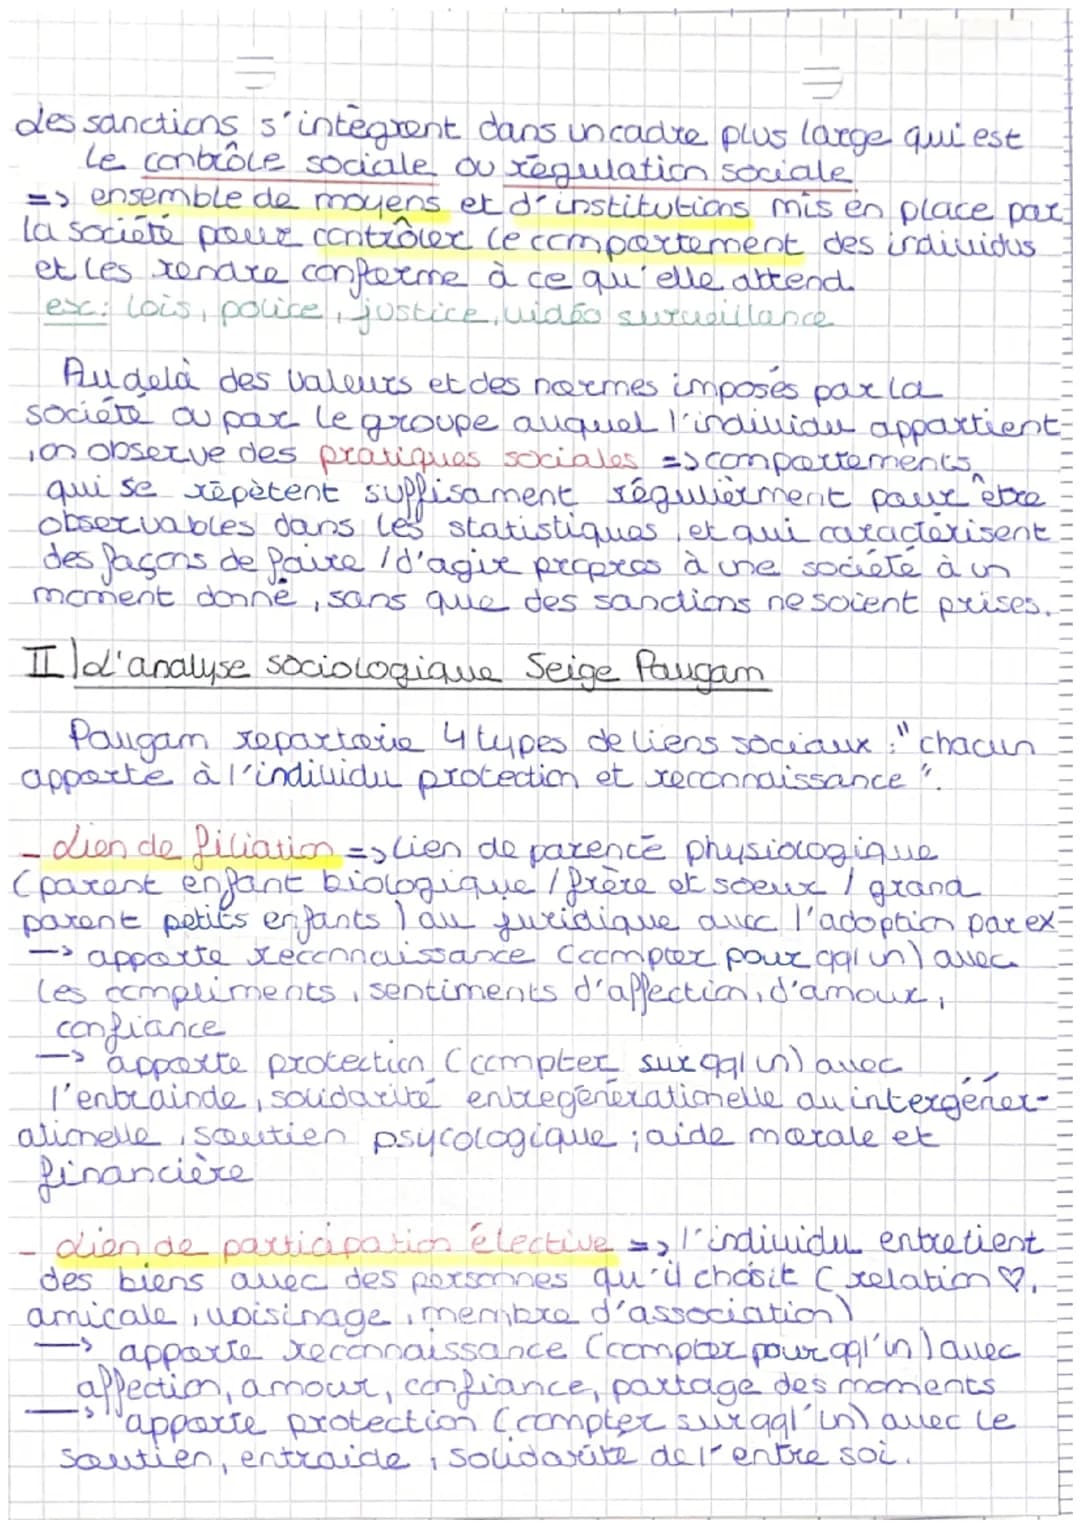 des sanctions s'intègrent dans un cadre plus large qui est
le contrôle sociale ou régulation sociale
=> ensemble de moyens et d'institutions mis en place par
la société pour contrôler le comportement des individus
et les rendre conforme à ce qu'elle attend.
ex: lois, police, justice, vidéo surveillance
Au delà des valeurs et des normes imposés par la
société ou par le groupe auquel l'individu appartient
, on observe des pratiques sociales => comportements
qui se répètent suffisament régulièrment pour être
observables dans les statistiques, et qui caractérisent
des façons de faire / d'agir propres à une société à un
moment donné, sans que des sanctions ne soient prises.
II) L'analyse sociologique Seige Paugam
Paugam repartorie 4 types de liens sociaux : "chacun
apporte à l'individu protection et reconnaissance".
- Lien de filiation => lien de parenté physiologique
(parent enfant biologique / frère et soeur / grand
parent petits enfants) au juridique avec l'adoption par ex
-> apporte reconnaissance (compter pour qql un) avec
les compliments, sentiments d'affection, d'amour,
confiance
-> apporte protection (compter sur qql un) avec
l'entrainde, solidarité entregénérationelle au intergéner-
ationelle, soutien psycologique ; aide morale et
financière
- Lien de participation élective => l'individu entretient
des biens avec des personnes qu'il chosit (relation ♡,
amicale, voisinage, membre d'association)
-> apporte reconnaissance (compter pour qql'un) avec
affection, amour, confiance, partage des moments
-> apporte protection (compter sur qql'un) avec le
soutien, entraide, solidarité de l'entre soi.